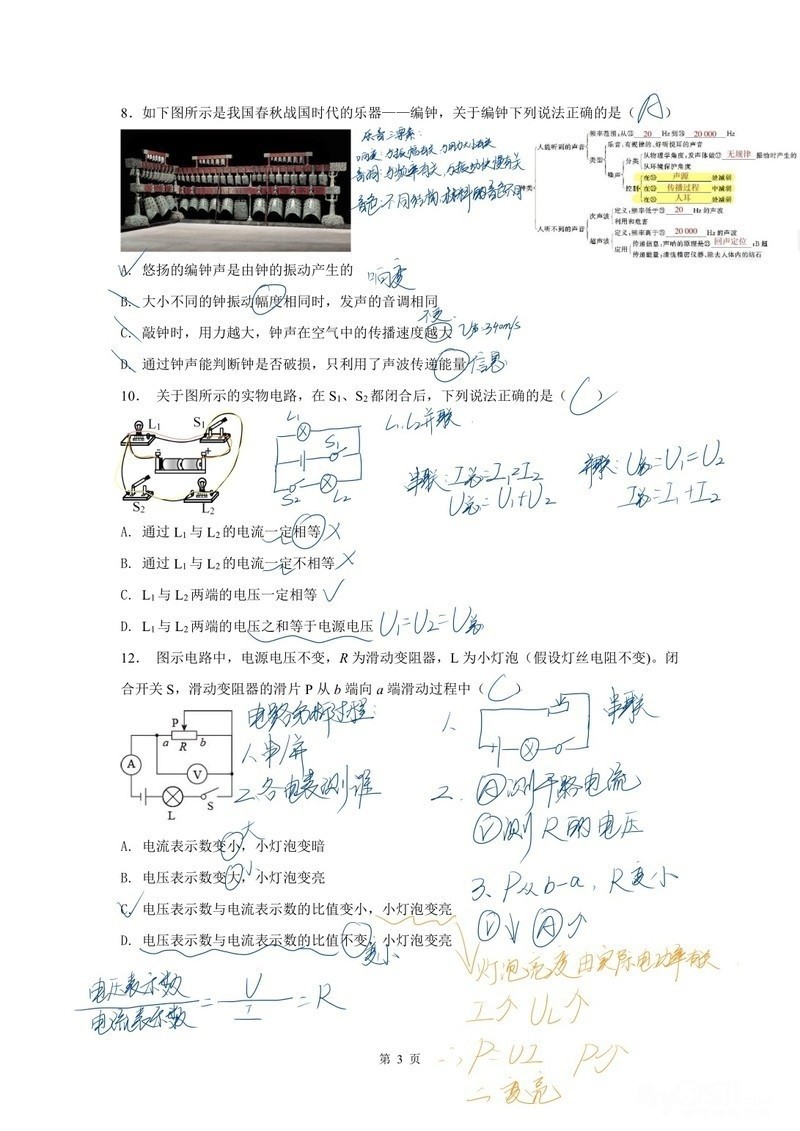 8. 如下图所示是我国春秋战国时代的乐器——编钟，关于编钟下列说法正确的是（ A ）
乐音三要素：
响度：与振幅有关，与用力大小有关
音调：与频率有关，与振动快慢有关
音色：不同形状、材料的音色不同
种类
人能听到的声音
频率范围：从⑮ 20 Hz到⑯ 20 000 Hz
类型
乐音：有规律的、好听悦耳的声音
噪声
分类
从物理学角度：发声体做⑰ 无规律 振动时产生的
从环境保护角度
控制
在⑱ 声源 处减弱
在⑲ 传播过程 中减弱
在⑳ 人耳 处减弱
人听不到的声音
次声波
定义：频率低于㉑ 20 Hz的声波
利用和危害
超声波
定义：频率高于㉒ 20 000 Hz的声波
应用
传递信息：声呐的原理是㉓ 回声定位 ；B超
传递能量：清洗精密仪器、除去人体内的结石
A. 悠扬的编钟声是由钟的振动产生的
响度
B. 大小不同的钟振动幅度相同时，发声的音调相同
不变
C. 敲钟时，用力越大，钟声在空气中的传播速度越大 V声=340m/s
D. 通过钟声能判断钟是否破损，只利用了声波传递能量 信息
10. 关于图所示的实物电路，在 S₁、S₂ 都闭合后，下列说法正确的是（ C ）
L₁ S₁
S₂ L₂
L₁
S₁
S₂ L₂
L₁、L₂并联
串联：I总=I₁=I₂
U总=U₁+U₂
并联：U总=U₁=U₂
I总=I₁+I₂
A. 通过 L₁ 与 L₂ 的电流一定相等 ×
B. 通过 L₁ 与 L₂ 的电流一定不相等 ×
C. L₁ 与 L₂ 两端的电压一定相等 √
D. L₁ 与 L₂ 两端的电压之和等于电源电压 U₁=U₂=U总
12. 图示电路中，电源电压不变，R 为滑动变阻器，L 为小灯泡（假设灯丝电阻不变)。闭
合开关 S，滑动变阻器的滑片 P 从 b 端向 a 端滑动过程中（ C ）
P
a R b
A
V
L S
电路分析过程：
1、串/并
2、各电表测谁
1、
串联
2、Ⓐ测干路电流
Ⓥ测 R 的电压
3、P从b-a，R变小
Ⓥ↓ Ⓐ↑
大
A. 电流表示数变小，小灯泡变暗
小
B. 电压表示数变大，小灯泡变亮
C. 电压表示数与电流表示数的比值变小，小灯泡变亮
D. 电压表示数与电流表示数的比值不变，小灯泡变亮
变小
灯泡亮度由实际电功率有关
I↑ UL↑
∴P=UI P↑
∴变亮
电压表示数/电流表示数 = U/I = R
第 3 页